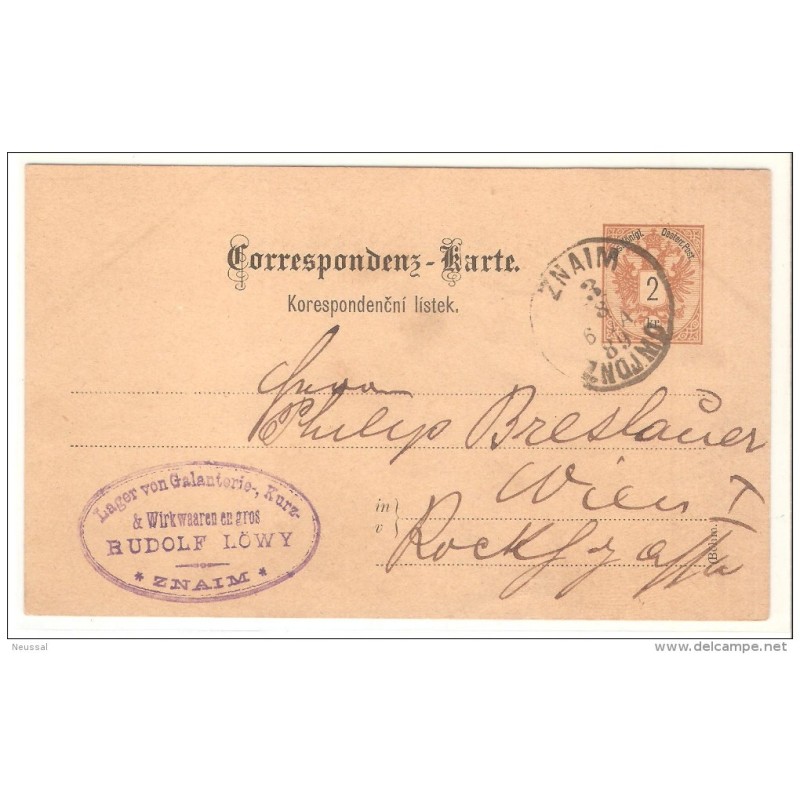 Correspondenz-Karte.
Korespondenční lístek.
Oesterr. Post.
2
kr.
ZNAIM
3
6
89
ZNOJMO
Herrn
Philip Breslauer
Wien I
in
v
Rockhgasse
(Böhm.)
Lager von Galanterie-, Kurz-
& Wirkwaaren en gros
RUDOLF LÖWY
* ZNAIM *
Neussal
delcampe.net